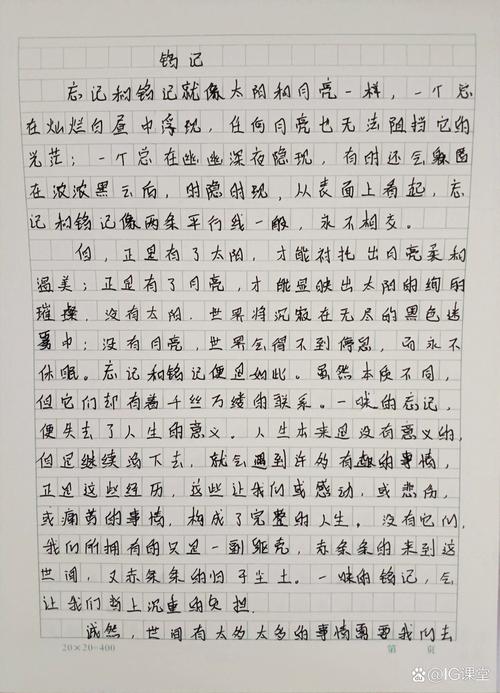 铭记
忘记和铭记就像太阳和月亮一样，一个总
在灿烂白昼中浮现，任何月亮也无法阻挡它的
光茫；一个总在幽幽深夜隐现，有时还会躲
在浓浓黑云后，时隐时现，从表面上看起，忘
记和铭记像两条平行线一般，永不相交。
但，正是有了太阳，才能衬托出月亮柔和
温美；正是有了月亮，才能显映出太阳的绚
璀璨，没有太阳，世界将沉寂在无尽的黑色迷
雾中；没有月亮，世界会得不到，而永不
休眠。忘记和铭记便是如此。虽然本质不同，
但它们却有着千丝万缕的联系。一味的忘记，
便失去了人生的意义。人生本来是没有意义的，
但是继续活下去，就会遇到许多有趣的事情，
正是这些经历，这些让我们或感动，或悲伤，
或痛苦的事情，构成了完整的人生。没有它们，
我们所拥有的只是一副躯壳，赤条条的来到这
世间，又赤条条的归于尘土。一味的铭记，会
让我们背上沉重的负担.
诚然，世间有太多太多的事情需要我们去
20×20=400
第 页
@IG课堂